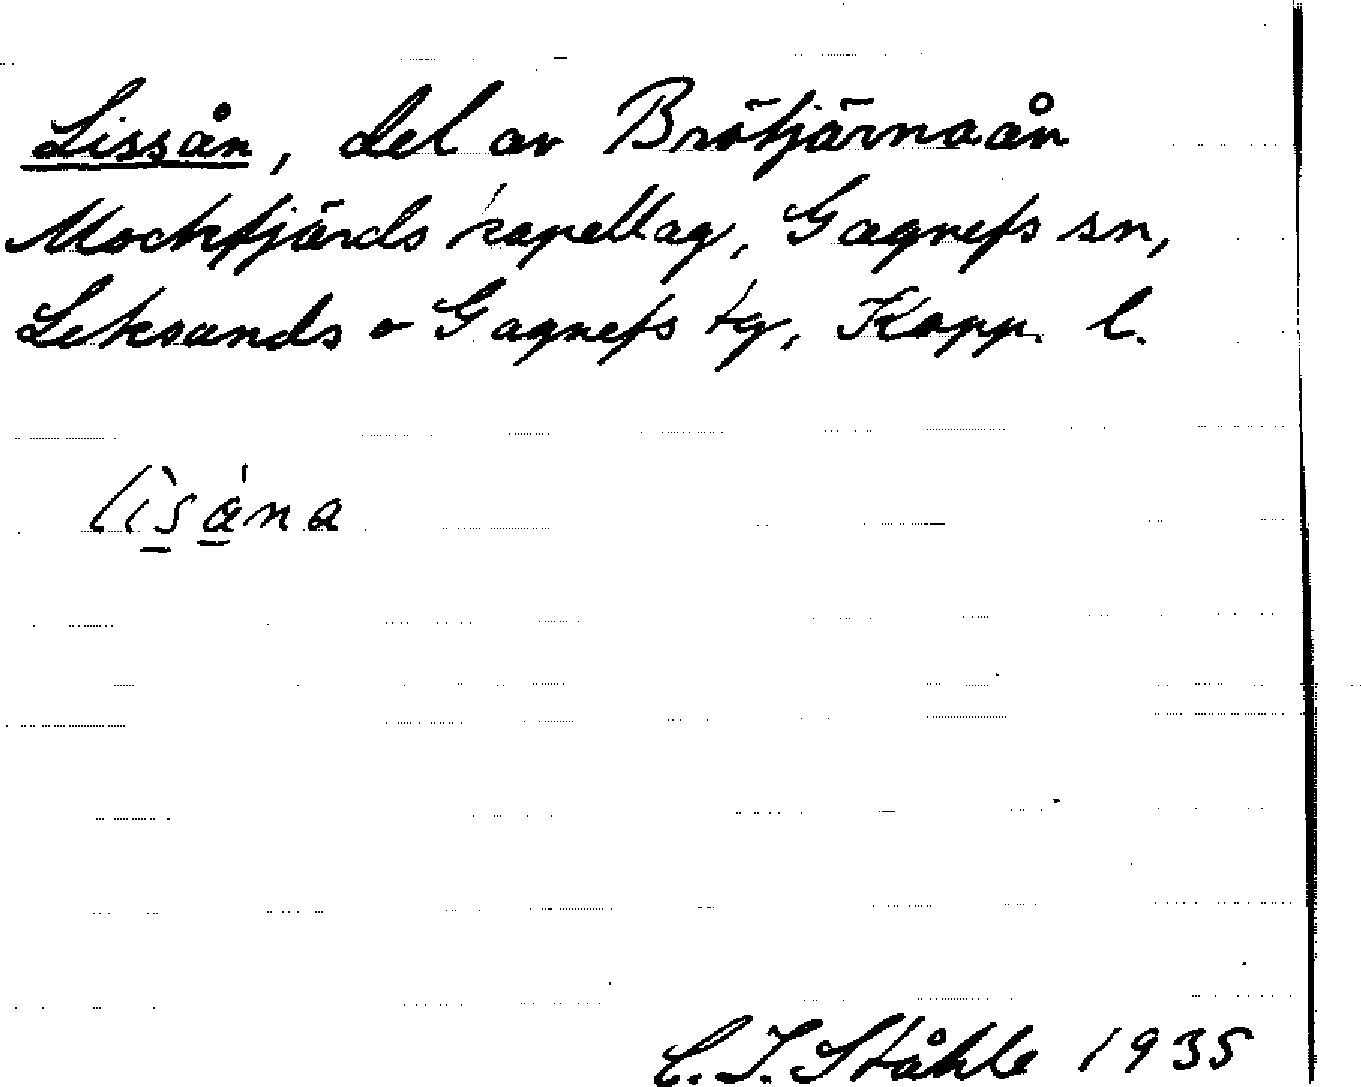 Lissån, del av Brötjärnaån
Mockfjärds kapellag, Gagnefs sn,
Leksands o Gagnefs tg, Kopp. l.
lìsa̱̍na
C. I. Ståhle 1935